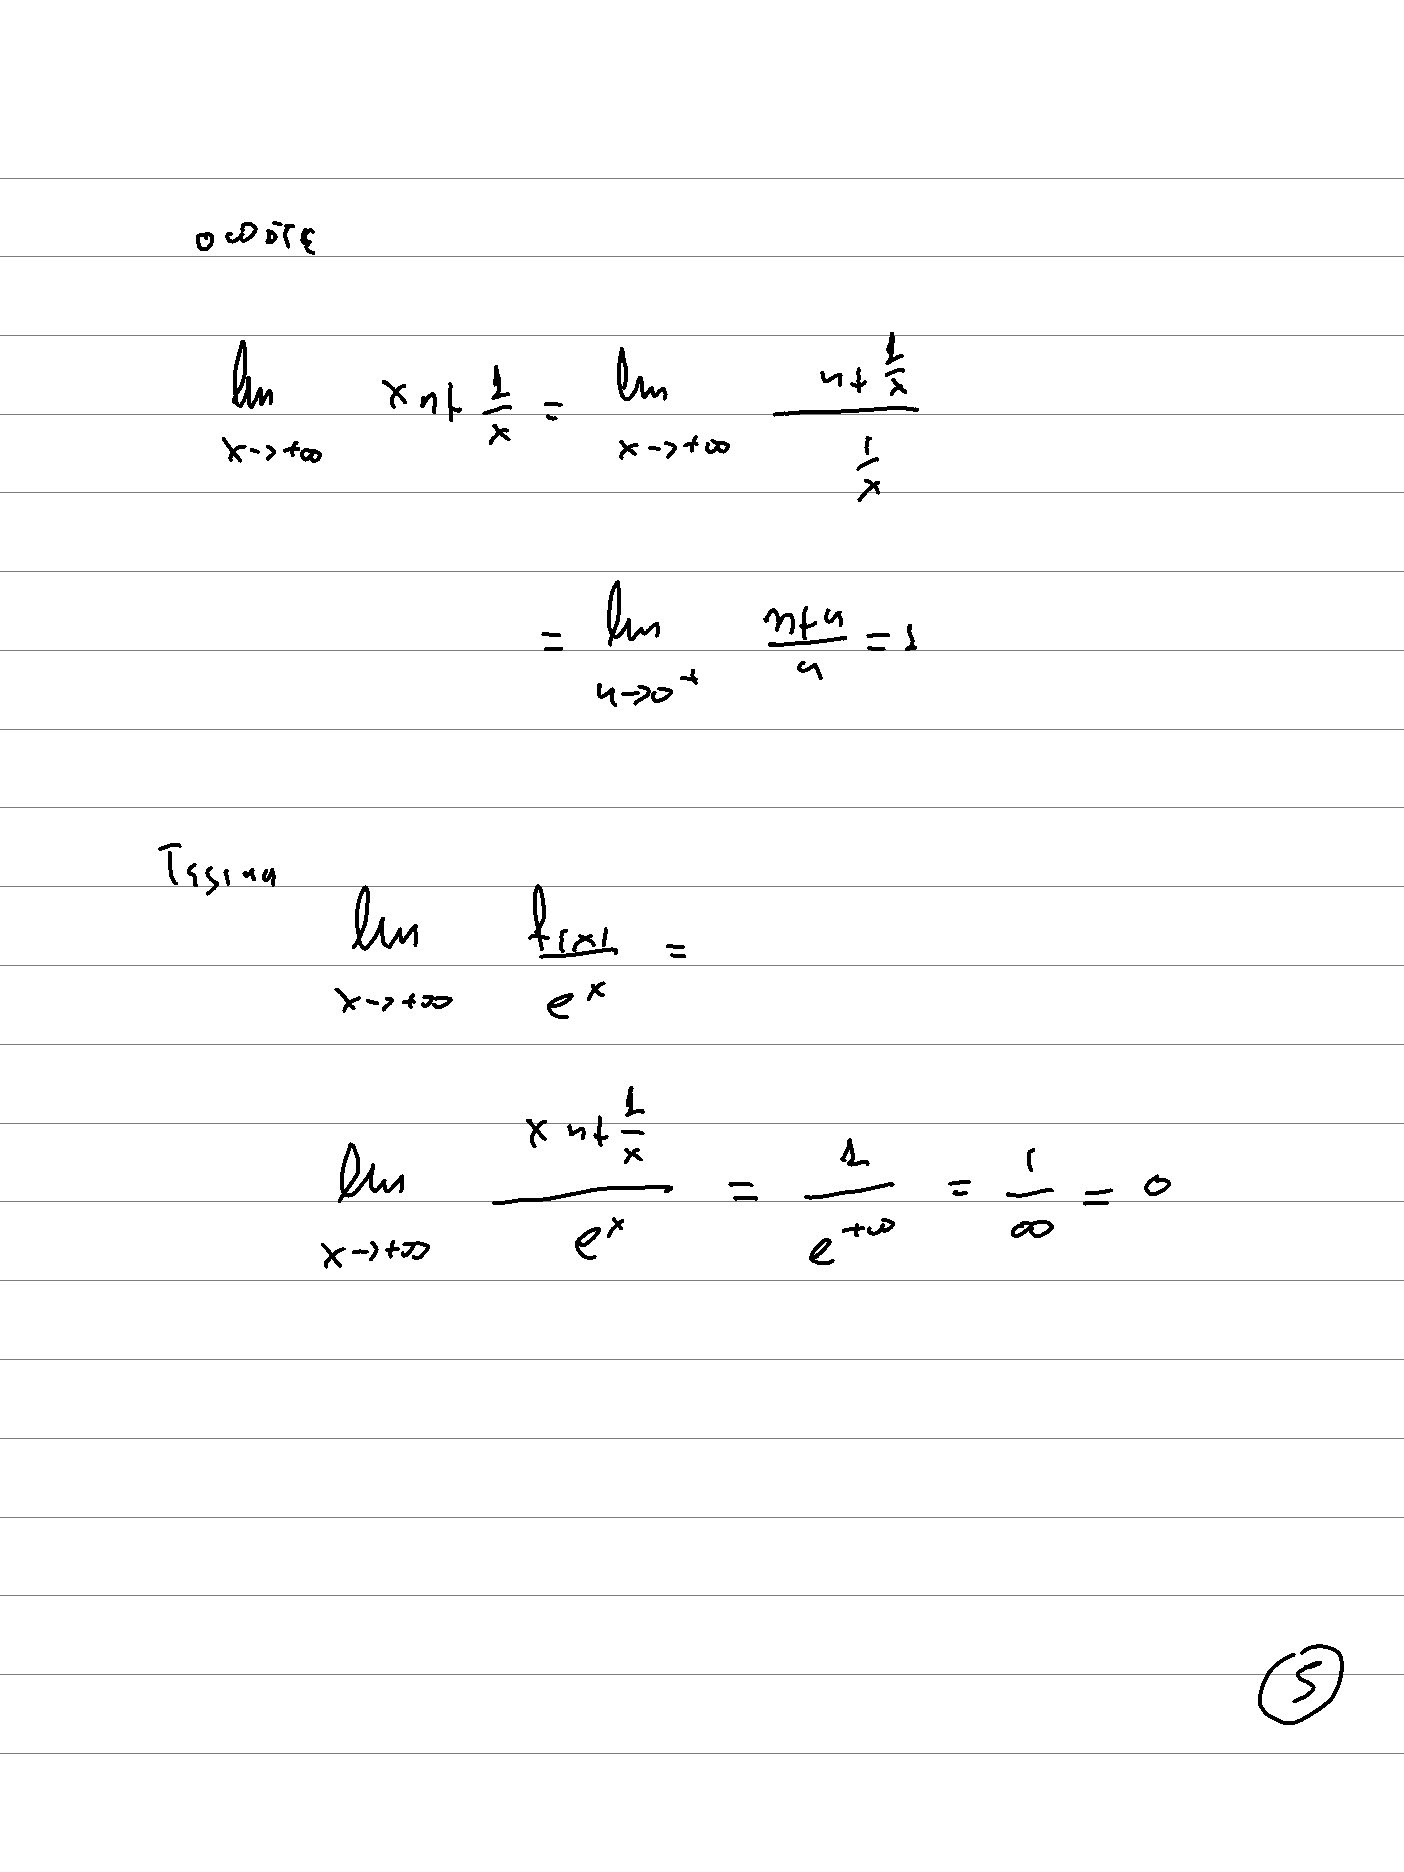 οπότε
lim x→+∞ x ημ 1/x = lim x→+∞ ημ 1/x / 1/x
= lim u→0⁺ ημu/u = 1
Τελικά lim x→+∞ f(x)/e^x =
lim x→+∞ x ημ 1/x / e^x = 1/e^{+∞} = 1/∞ = 0
5